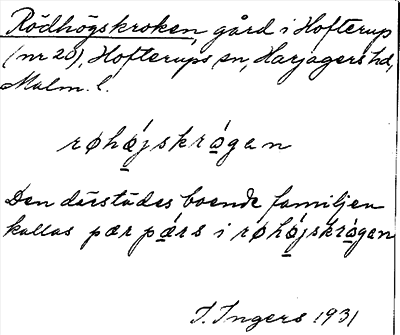 Rödhögskroken, gård i Hofterup
(nr 20), Hofterups sn, Harjagers hd,
Malm. l.
røhǫ́jskrǫ́gan
Den därstädes boende familjen
kallas pær pǽ̨rs i røhǫ́jskrǫ́gan
I. Ingers 1931